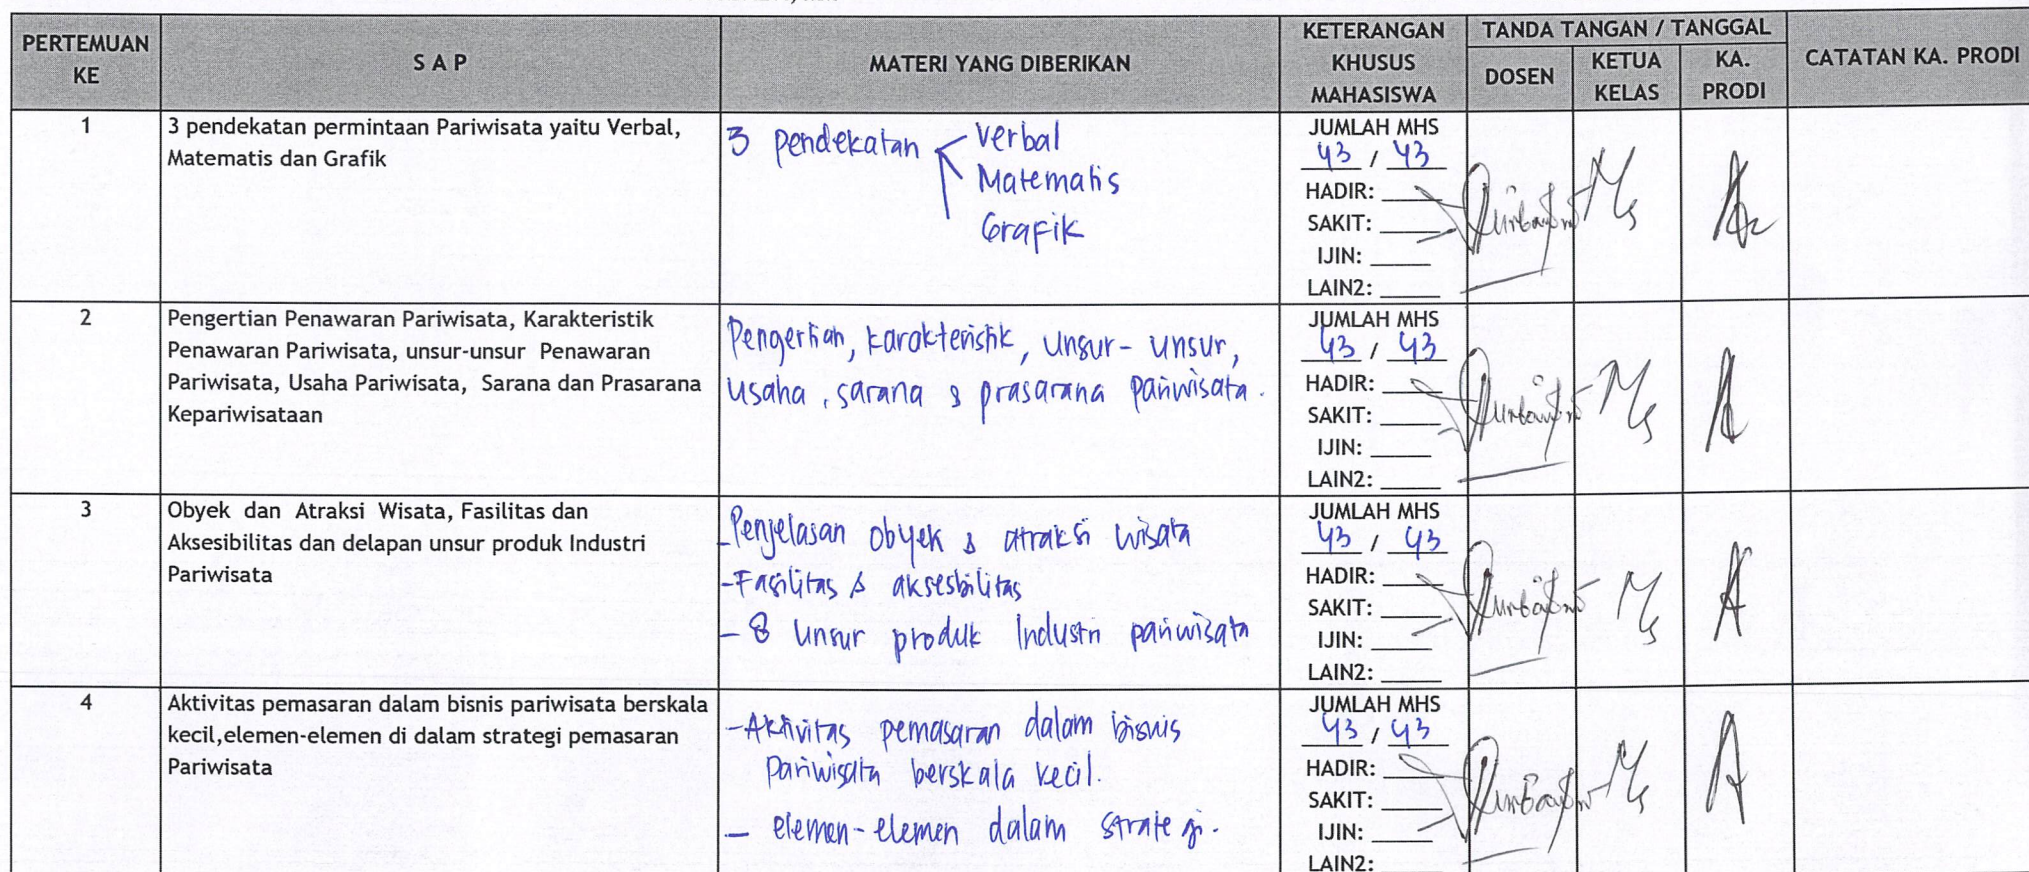 PERTEMUAN KE
S A P
MATERI YANG DIBERIKAN
KETERANGAN KHUSUS MAHASISWA
TANDA TANGAN / TANGGAL
DOSEN
KETUA KELAS
KA. PRODI
CATATAN KA. PRODI
1
3 pendekatan permintaan Pariwisata yaitu Verbal,
Matematis dan Grafik
3 pendekatan Verbal
Matematis
Grafik
JUMLAH MHS
43 / 43
HADIR:
SAKIT:
IJIN:
LAIN2:
2
Pengertian Penawaran Pariwisata, Karakteristik
Penawaran Pariwisata, unsur-unsur Penawaran
Pariwisata, Usaha Pariwisata, Sarana dan Prasarana
Kepariwisataan
Pengertian, karakteristik, unsur-unsur,
usaha, sarana & prasarana pariwisata.
JUMLAH MHS
43 / 43
HADIR:
SAKIT:
IJIN:
LAIN2:
3
Obyek dan Atraksi Wisata, Fasilitas dan
Aksesibilitas dan delapan unsur produk Industri
Pariwisata
- Penjelasan obyek & atraksi wisata
- Fasilitas & aksesbilitas
- 8 unsur produk Industri pariwisata
JUMLAH MHS
43 / 43
HADIR:
SAKIT:
IJIN:
LAIN2:
4
Aktivitas pemasaran dalam bisnis pariwisata berskala
kecil,elemen-elemen di dalam strategi pemasaran
Pariwisata
- Aktivitas pemasaran dalam bisnis
pariwisata berskala kecil.
- elemen-elemen dalam strategi.
JUMLAH MHS
43 / 43
HADIR:
SAKIT:
IJIN:
LAIN2: